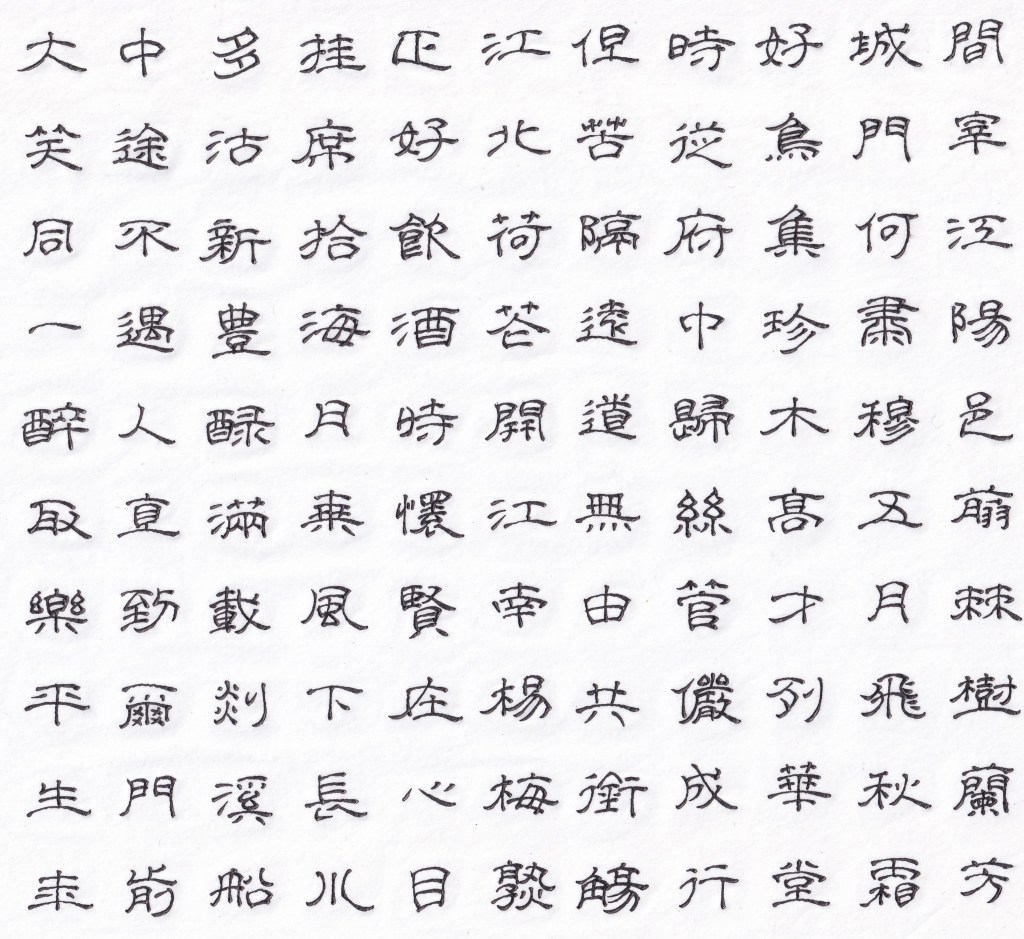 間宰江陽邑翦棘樹蘭芳
城門何肅穆五月飛秋霜
好鳥集珍木高才列華堂
時從府中歸絲管儼成行
但苦隔遠道無由共銜觴
江北荷花開江南楊梅熟
正好飲酒時懷賢在心目
挂席拾海月乘風下長川
多沽新豊醁滿載剡溪船
中途不遇人直到爾門前
大笑同一醉取樂平生年